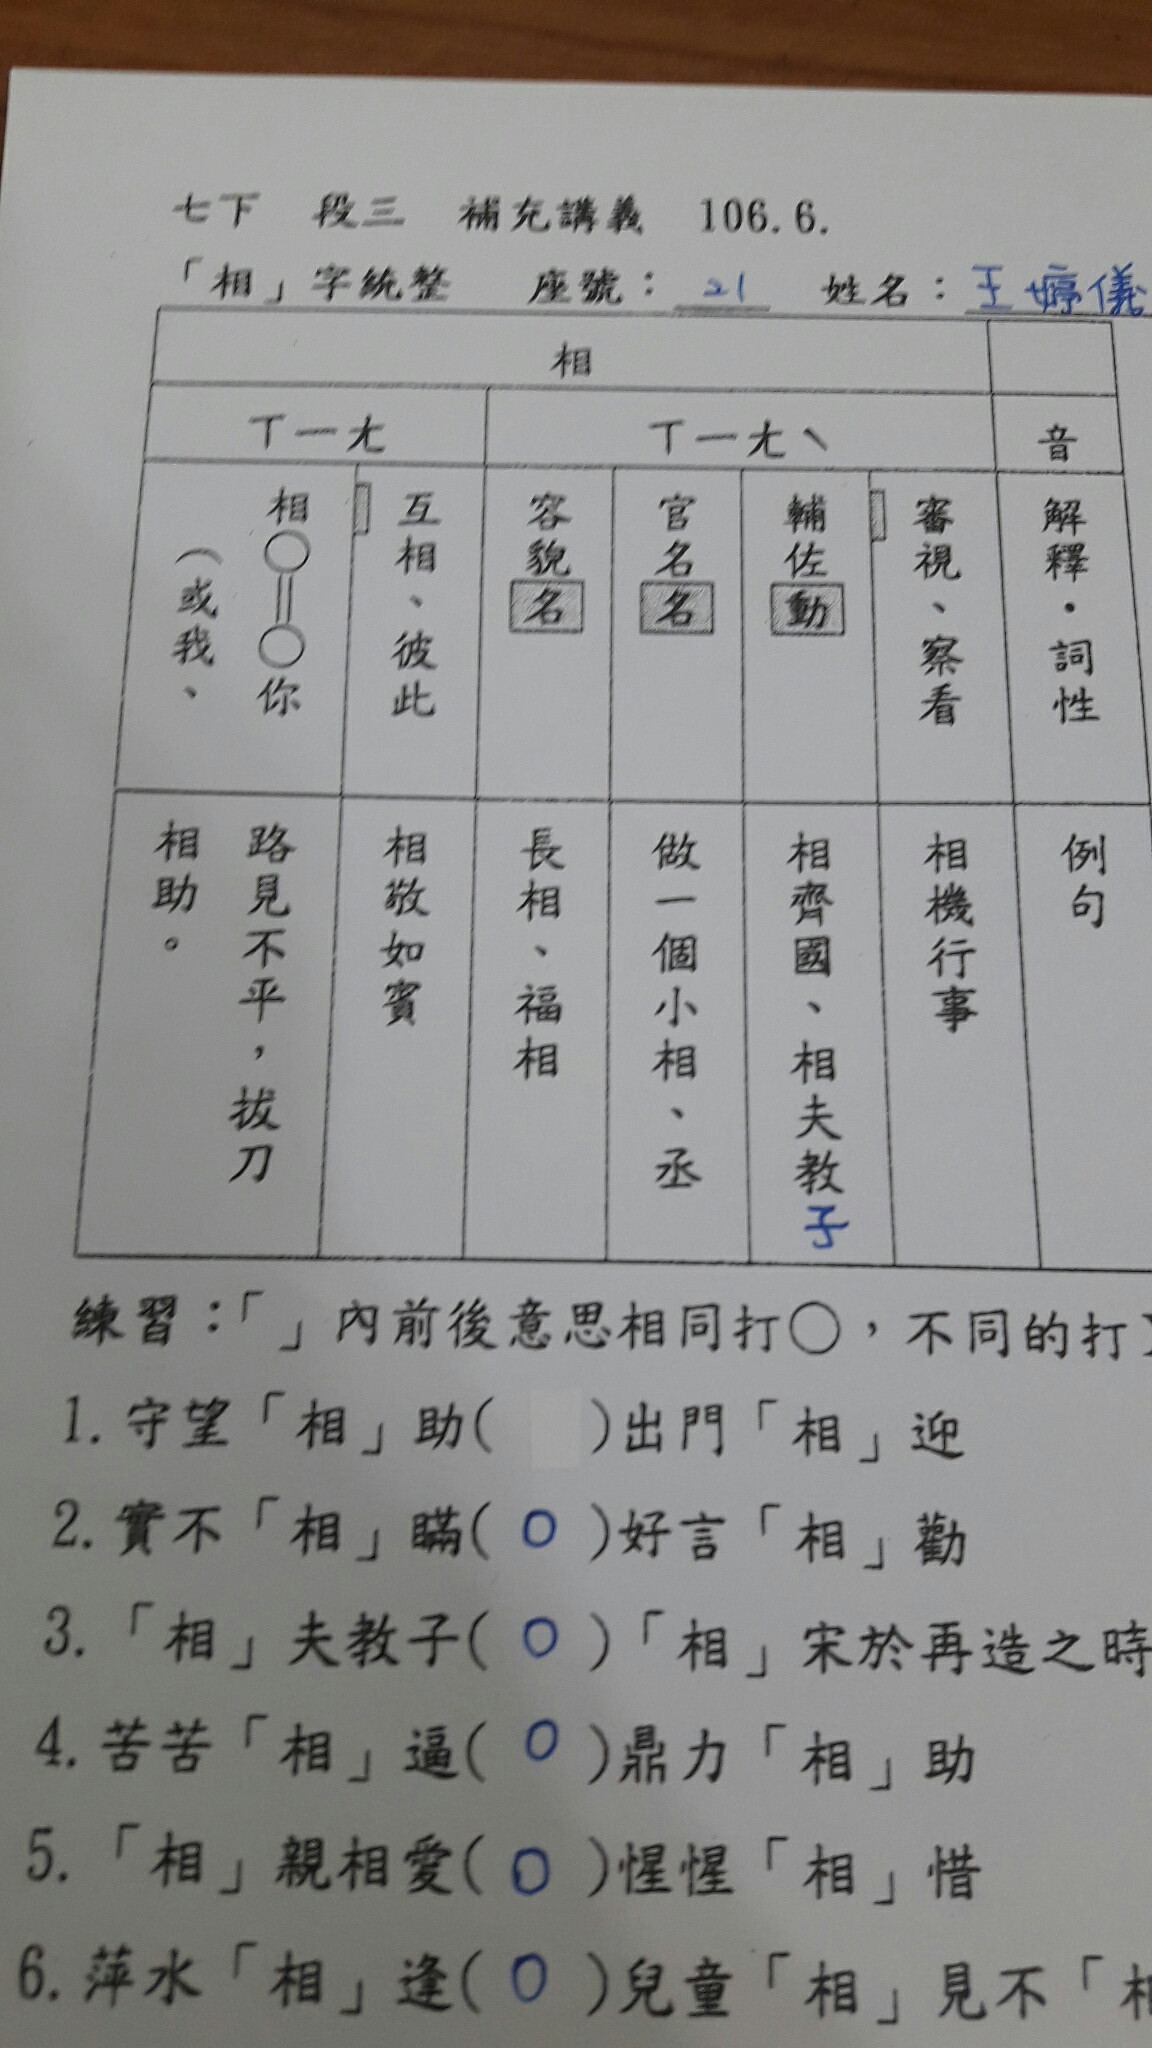 七下　段三　補充講義　106.6.
「相」字統整　座號：21　姓名：王婷儀
相
音
ㄒㄧㄤˋ
ㄒㄧㄤ
解釋．詞性
審視、察看
輔佐動
官名名
容貌名
互相、彼此
相○＝○你
（或我、
例句
相機行事
相齊國、相夫教子
做一個小相、丞
長相、福相
相敬如賓
路見不平，拔刀
相助。
練習：「」內前後意思相同打○，不同的打
1.守望「相」助(　)出門「相」迎
2.實不「相」瞞(○)好言「相」勸
3.「相」夫教子(○)「相」宋於再造之時
4.苦苦「相」逼(○)鼎力「相」助
5.「相」親相愛(○)惺惺「相」惜
6.萍水「相」逢(○)兒童「相」見不「相